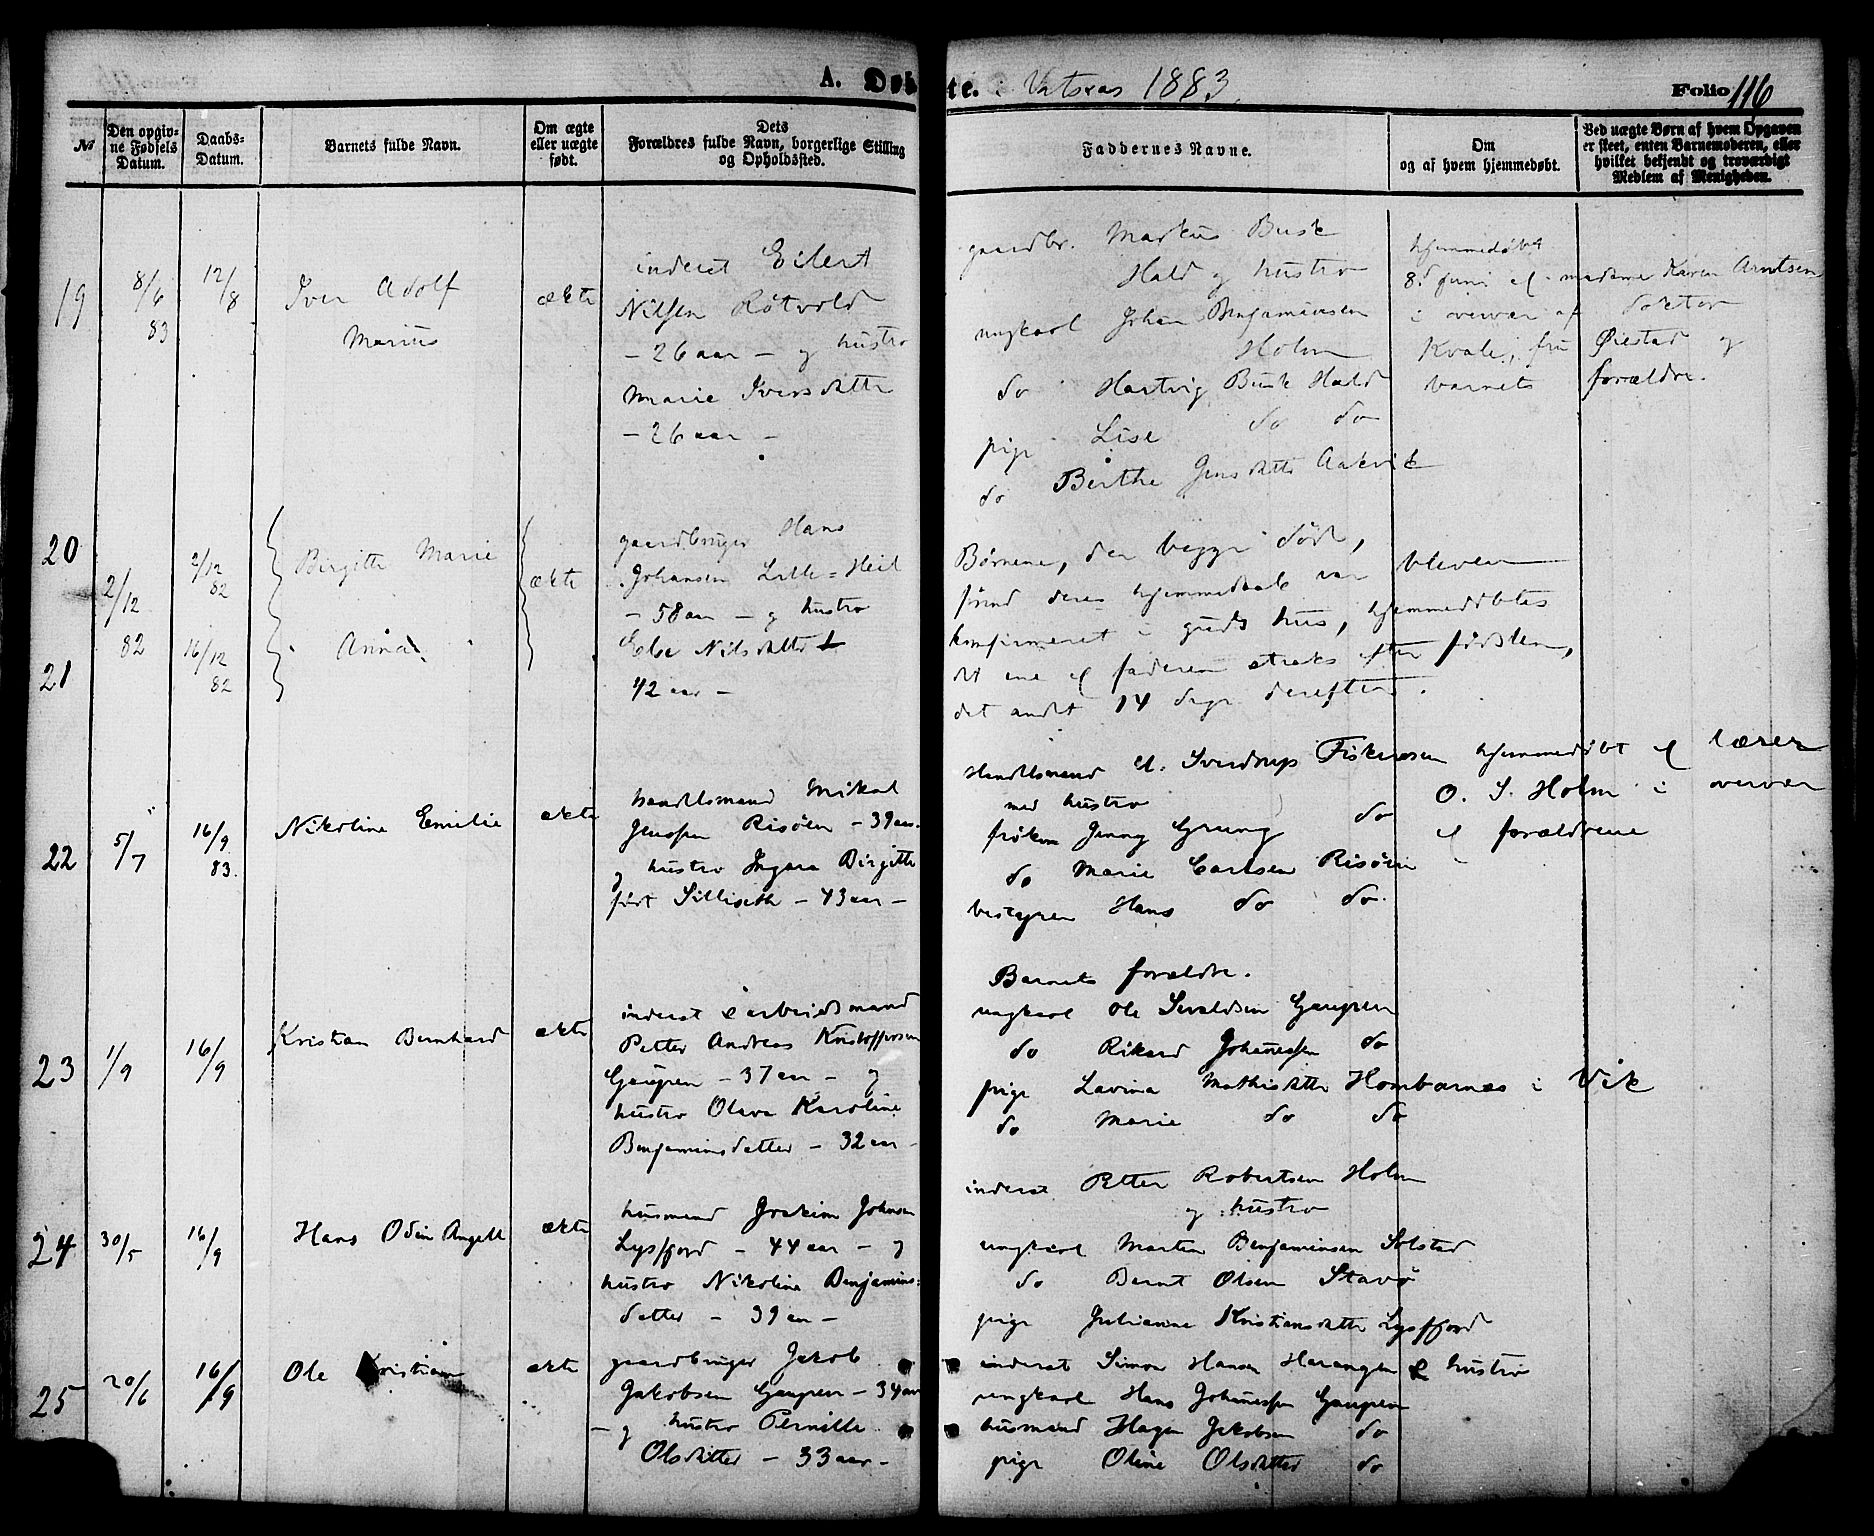 A. Døbte. i Vatsaas 1883.
Folio 116
№
Den opgivne Fødsels Datum.
Daabs-Datum.
Barnets fulde Navn.
Om ægte eller uægte født.
Dets Forældres fulde Navn, borgerlige Stilling og Opholdssted.
Faddernes Navne.
Om og af hvem hjemmedøbt.
Ved uægte Børn af hvem Opgaven er skeet, enten Barnemoderen, eller hvilket bekjendt og troværdigt Medlem af Menigheden.
19
8/6 83
12/8
Iver Adolf
Marius
ækte
inderst Eilert
Nilsen Røtvold
– 26 aar – og hustro
Marie Iversdatter
– 26 aar –
gaardbr. Markus Busk
Hald og hustro
ungkarl Johan Benjaminsen
Holm
do Hartvig Busk Hald
pige Lise do do
do Berthe Jensdatter Aakvik
hjemmedøbt
8. juni af madame Karen Arntsen
i overvær af doktor
Kvale, fru Øiestad og
barnets forældre.
20
2/12 82
2/12 82
Birgitte Marie
ækte
gaardbruger Hans
Johansen Lille-Heil
– 58 aar – og hustro
Else Nilsdatter
42 aar –
21
16/12 82
Anna
Børnene, der begge døde,
førend deres hjemmedaab var bleven
konfirmeret i guds hus, hjemmedøbtes
det ene af faderen straks efter fødslen,
det andet 14 dage derefter.
22
5/7
16/9 83.
Nikoline Emilie
ækte
handelsmand Mikal
Jenssen Risøen – 39 aar.
og hustro Ingara Birgitte
født Silliseth – 43 aar –
Handelsmand A. Sverdrup Fiskerosen
med hustro
frøken Jenny Grung do
do Marie Carlsen Risøen
bestyrer Hans do do.
hjemmedøbt af lærer
O. S. Holm i overvær
af forældrene
23
1/9
16/9
Kristian Bernhard
ækte
inderst & arbeidsmand
Petter Andreas Kristoffersen
Gaupen – 37 aar – og
hustro Olava Karoline
Benjaminsdatter – 32 aar –
Barnets forældre.
ungkarl Ole Sivaldsen Gaupen
do Rikard Johannessen do
pige Lavina Mathisdatter Hombornes i Vik
do Marie do do
24
30/5
16/9
Hans Odin Angell
ækte
husmand Joakim Johnsen
Lysfjord – 44 aar – og
hustro Nikoline Benjamins-
datter – 39 aar –
inderst Petter Robertsen Holm
og hustro
ungkarl Martin Benjaminsen Solstad
do Bernt Olsen Stavø
pige Julianne Kristiansdatter Lysfjord
25
20/6
16/9
Ole Kristian
ækte
gaardbruger Jakob
Jakobsen Gaupen – 34 aar
– og hustro Pernille
Olsdatter – 33 aar –
inderst Simon Hansen Harangen & hustro
ungkarl Hans Johannessen Gaupen
husmand Hagen Jakobsen do
pige Oline Olsdatter do